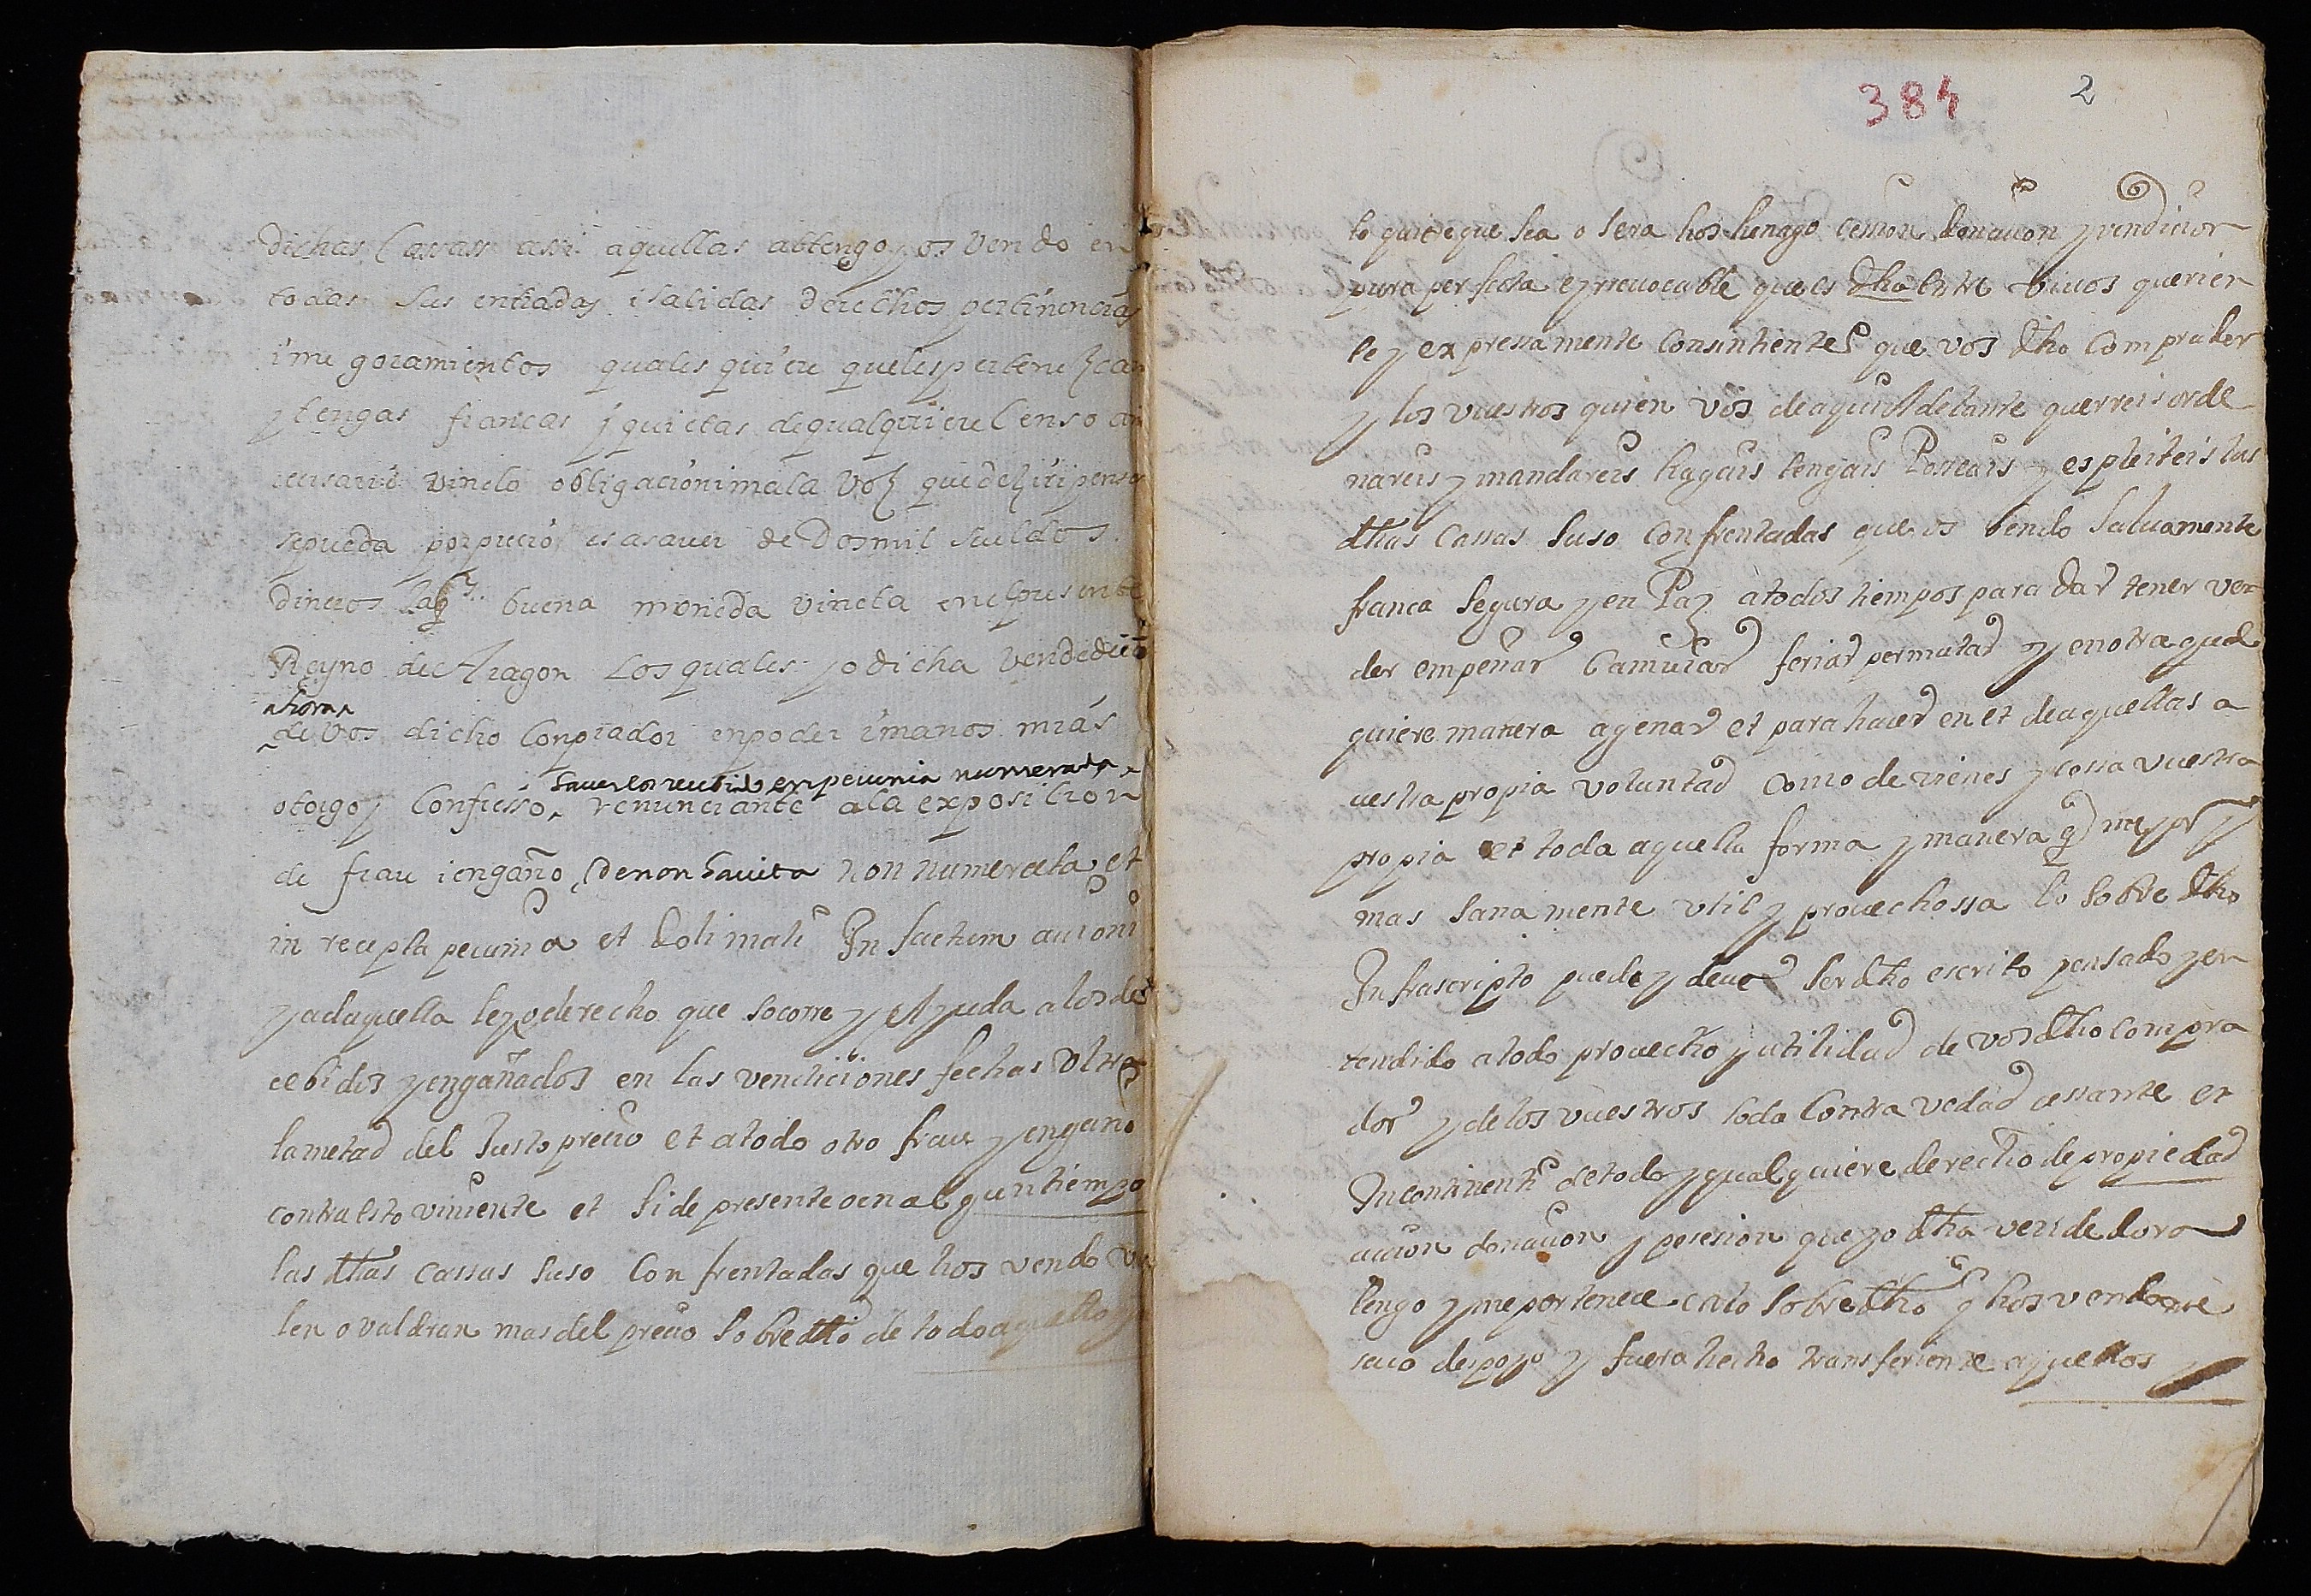 dichas Cassas assi aquellas abtengo y os vendo en
todas sus entradas i salidas derechos pertinencias
i megoramientos quales quiere que les pertenezcan
y tengas francas y quietas de qualquiere Censo an
vinclo obligacion i mala voz que dezir i pensar
se pueda por precio es a saver de Dos mil sueldos
dineros Jaq.s buena moneda vincta en el presente
Reyno de Aragon Los quales yo dicha vendedera
ahora
de vos dicho Conprador en poder i manos mias
haverlos recebido en pecunia numerata
otorgo y Confiesso renunciante a la exposition
de frau i engaño, de non havita non numerata et
in recepta pecunia et doli mali In factum actioni
y ad aquella ley o derecho que socorre y Ayuda a los de
cebidos y engañados en las vendiciones fechas ultra
la metad del Justo precio et a todo otro frau y engano
contra esto viniente et si de presente o en algun tiempo
las dhas cassas suso Confrentadas que hos vendo va
len o valdran mas del precio sobredho de todo aquello
lo quiere que sea o sera hos henago cesion donacion y vendicion
pura perfecta e yrrevocable que es dha entre bivos querien
te y expressamente Consintiente que vos dho Comprador
y los vuestros quien vos de aqui Adelante querreis orde
nareis y mandareis hagais tengais Posseais y espleiteis las
dhas Cassas suso Confrentadas que os bendo salvamente
franca segura y en Paz a todos tiempos para dar tener ven
der empeñar Camviar feriar permutar y en otra qual
quiere manera agenar et para hacer en et de aquellas a
vestra propia voluntad Como de vienes y cossa vuestra
propia et toda aquella forma y manera q mejor y
mas sanamente util y provechossa lo sobre dho
Infrascripto puede y deve ser dho escrito pensado y en
tendido a todo provecho y utilidad de vos dho Compra
dor y de los vuestros toda Contra vedad cessante et
Incontinenti de todo y qualquiere derecho de propiedad
accion donacion y posesion que yo dha vendedora
tengo y me pertenece en lo sobre dho q hos vendo me
saco despojo y fuera hecho transferiente aquellos y
384
2